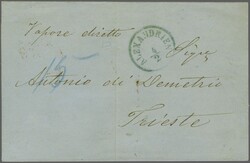 Vapore diretto
ALEXANDRIEN
Sigr
15
Antonio di Demetrio
Trieste